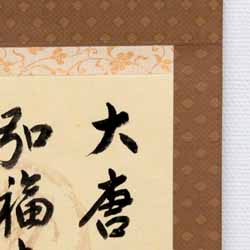 大唐
弘福